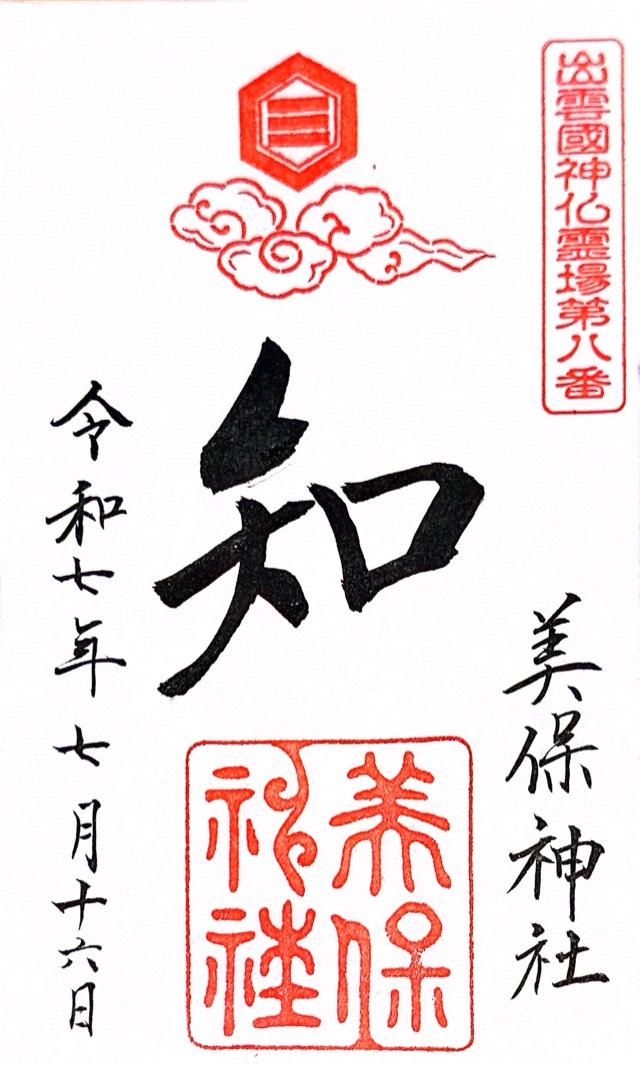 出雲國神仏霊場第八番
美保神社
知
美保
神社
令和七年七月十六日